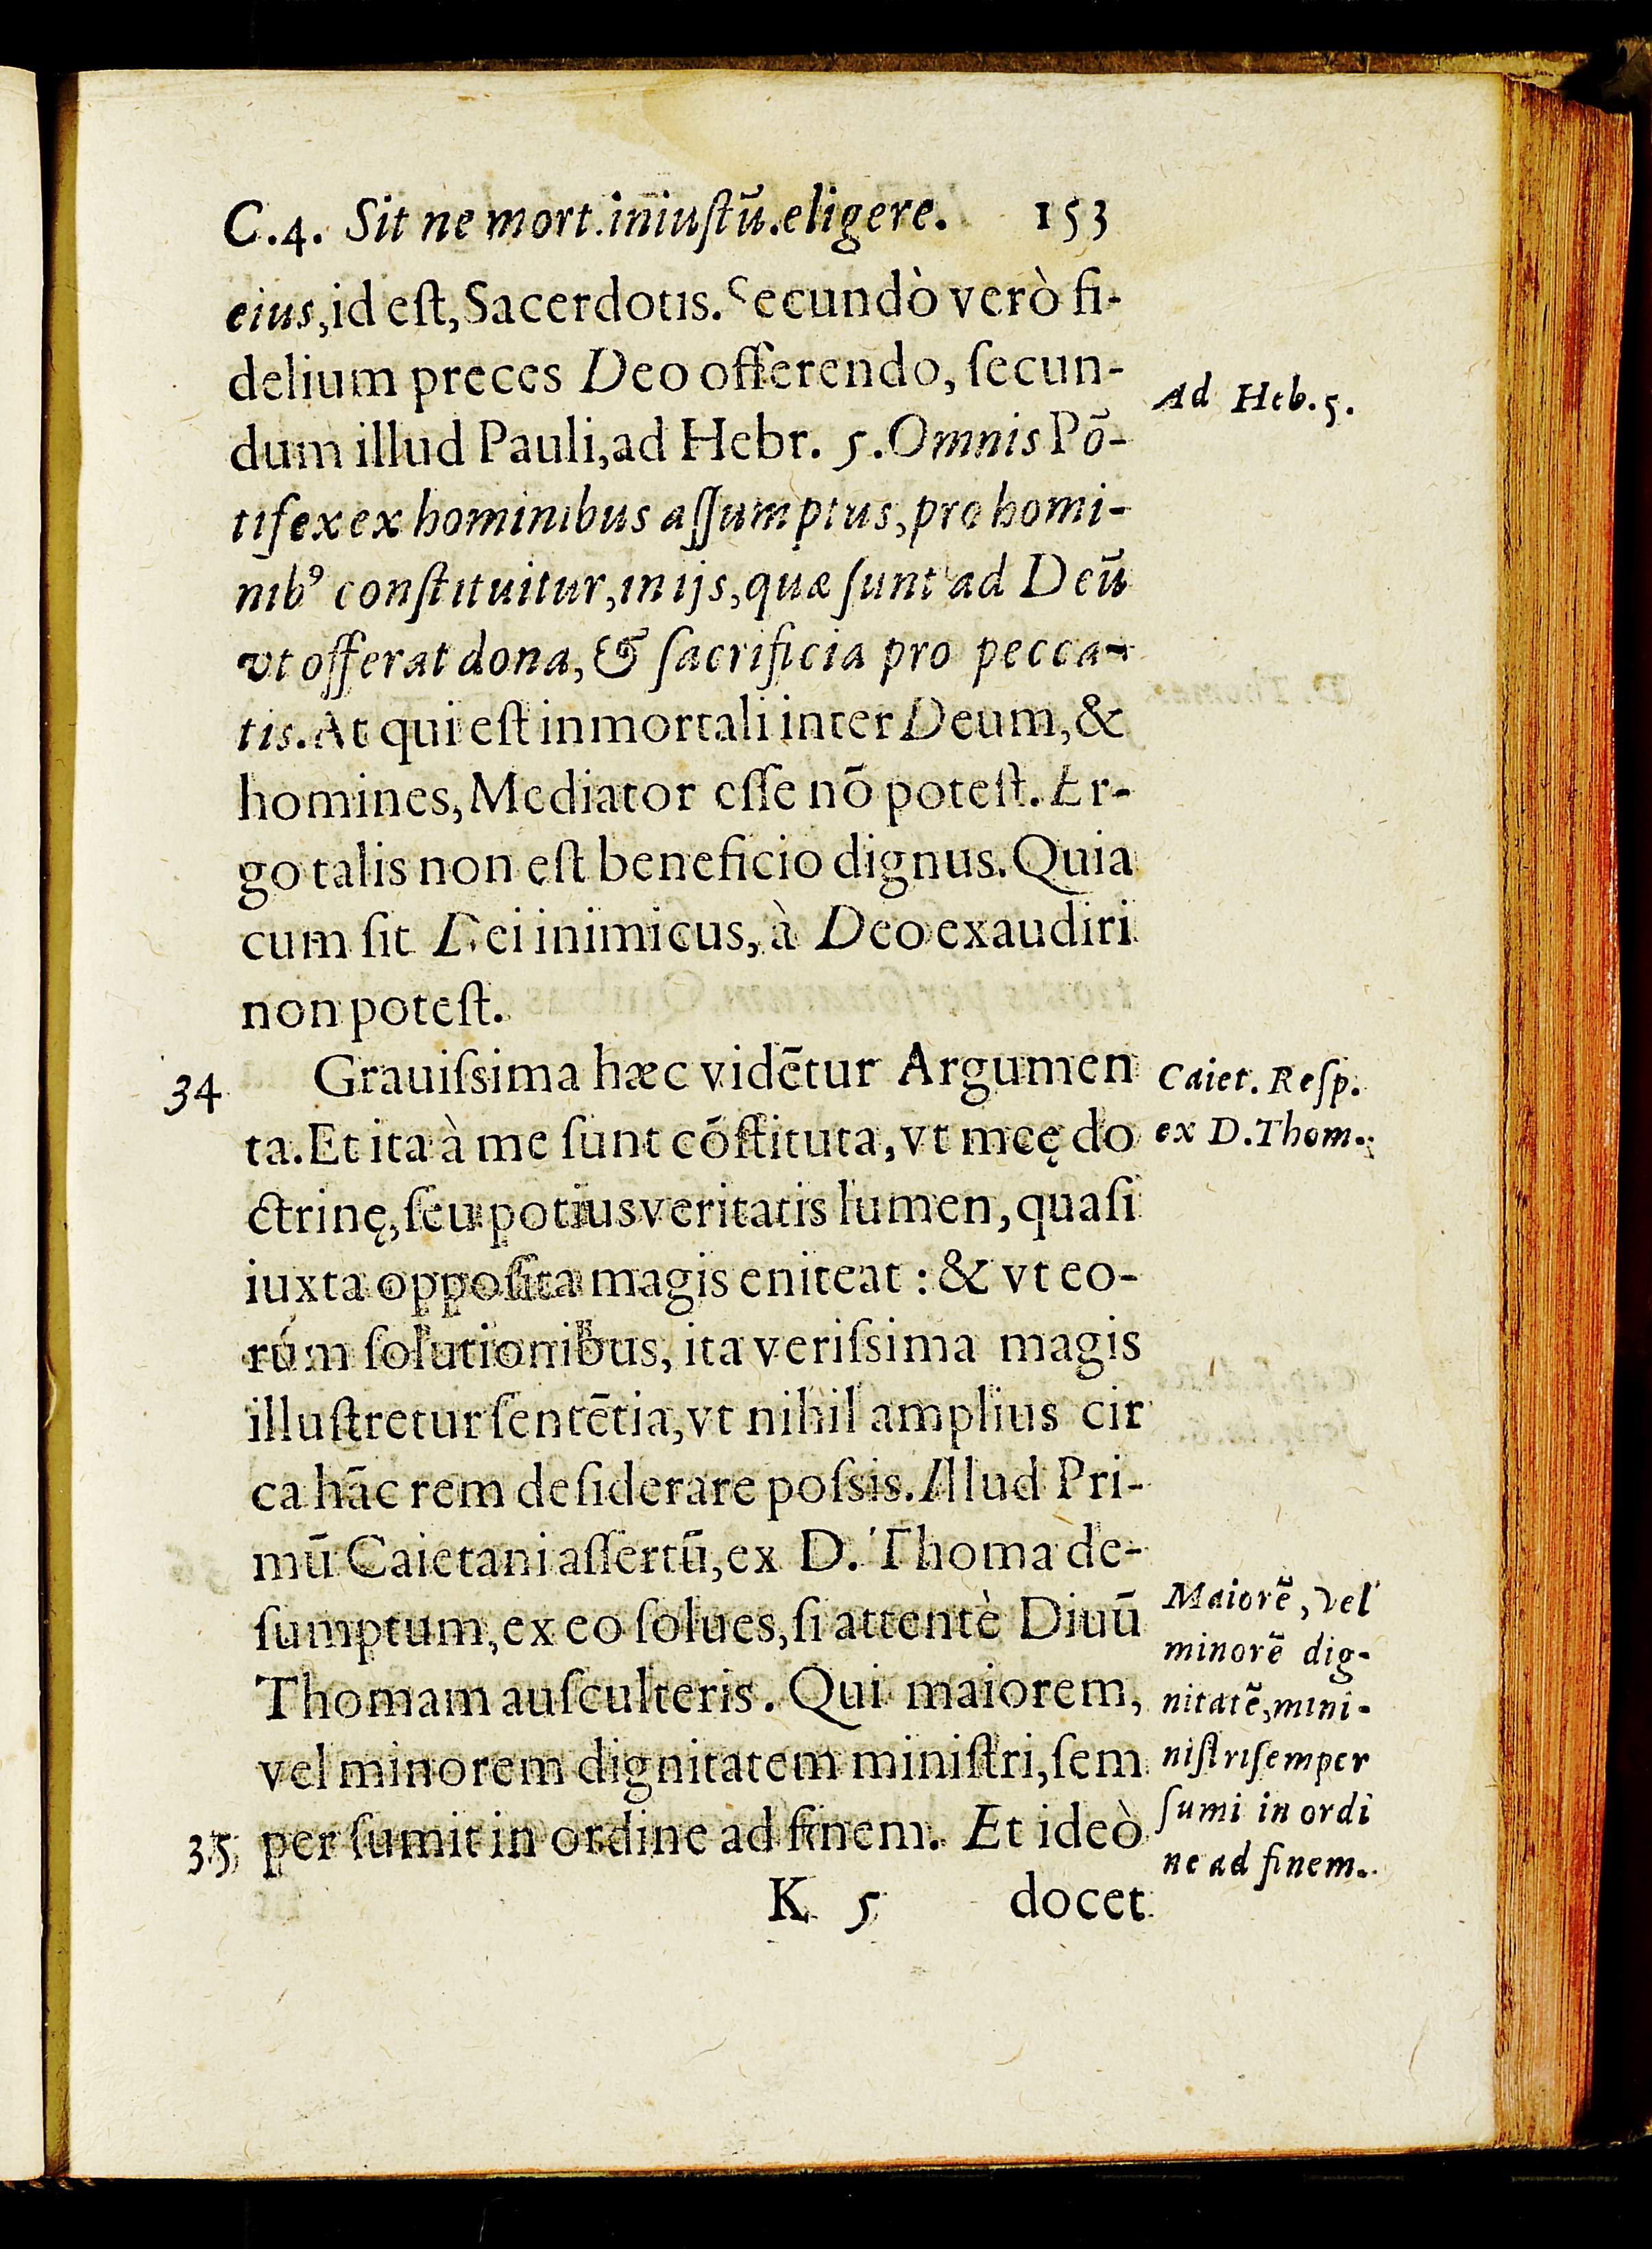 C.4. Sit ne mort.in̄iuſtū.eligere. 153
eius,id eſt,Sacerdotis. Secundò verò fi-
delium preces Deo offerendo, ſecun-
dum illud Pauli,ad Hebr. 5. Omnis Pō-
tifex ex hominibus aſſumptus,pro homi-
nibꝰ conſtituitur,in ijs,quæ ſunt ad Deū
vt offerat dona, & ſacrificia pro pecca-
tis. At qui eſt in mortali inter Deum,&
homines, Mediator eſſe nō poteſt. Er-
go talis non eſt beneficio dignus. Quia
cum ſit Dei inimicus, à Deo exaudiri
non poteſt.
Grauiſsima hæc vidētur Argumen
ta. Et ita à me ſunt cōſtituta, vt meę do
ctrinę, ſeu potius veritatis lumen, quaſi
iuxta oppoſita magis eniteat : & vt eo-
rúm ſolutionibus, ita veriſsima magis
illuſtretur ſentētia,vt nihil amplius cir
ca hāc rem deſiderare poſsis. Illud Pri-
mū Caietani aſſertū,ex D. Thoma de-
ſumptum, ex eo ſolues, ſi attentè Diuū
Thomam auſculteris. Qui maiorem,
vel minorem dignitatem miniſtri, ſem
per ſumit in ordine ad finem. Et ideò
K 5 docet
Ad Heb.5.
34
Caiet. Reſp.
ex D.Thom.
Maiorē, vel
minorē dig-
nitatē,mini-
niſtri ſemper
ſumi in ordi
ne ad finem.
35